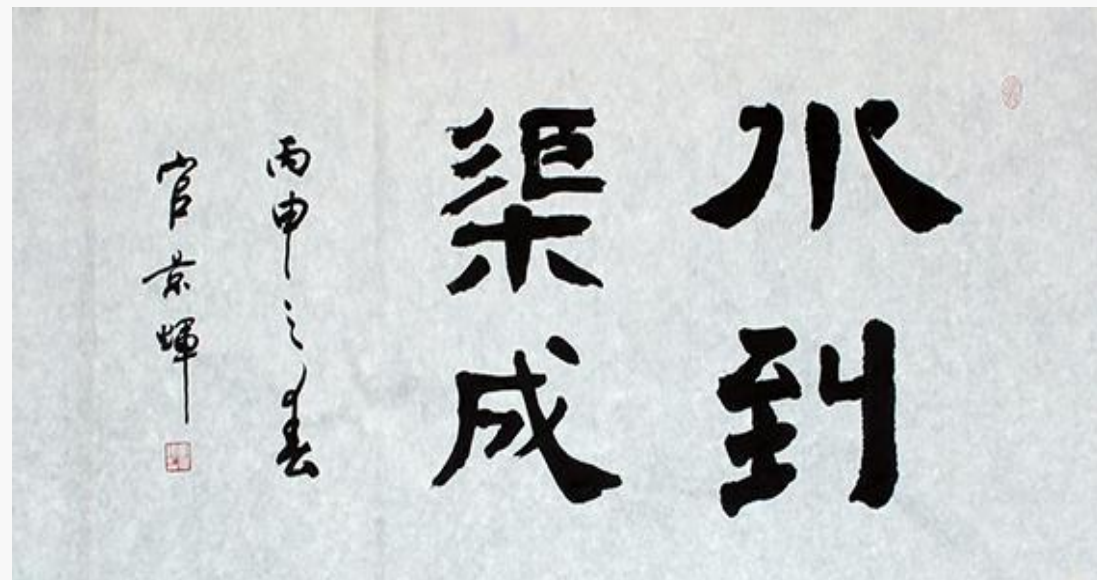 水到
渠成
丙申之春
官景輝